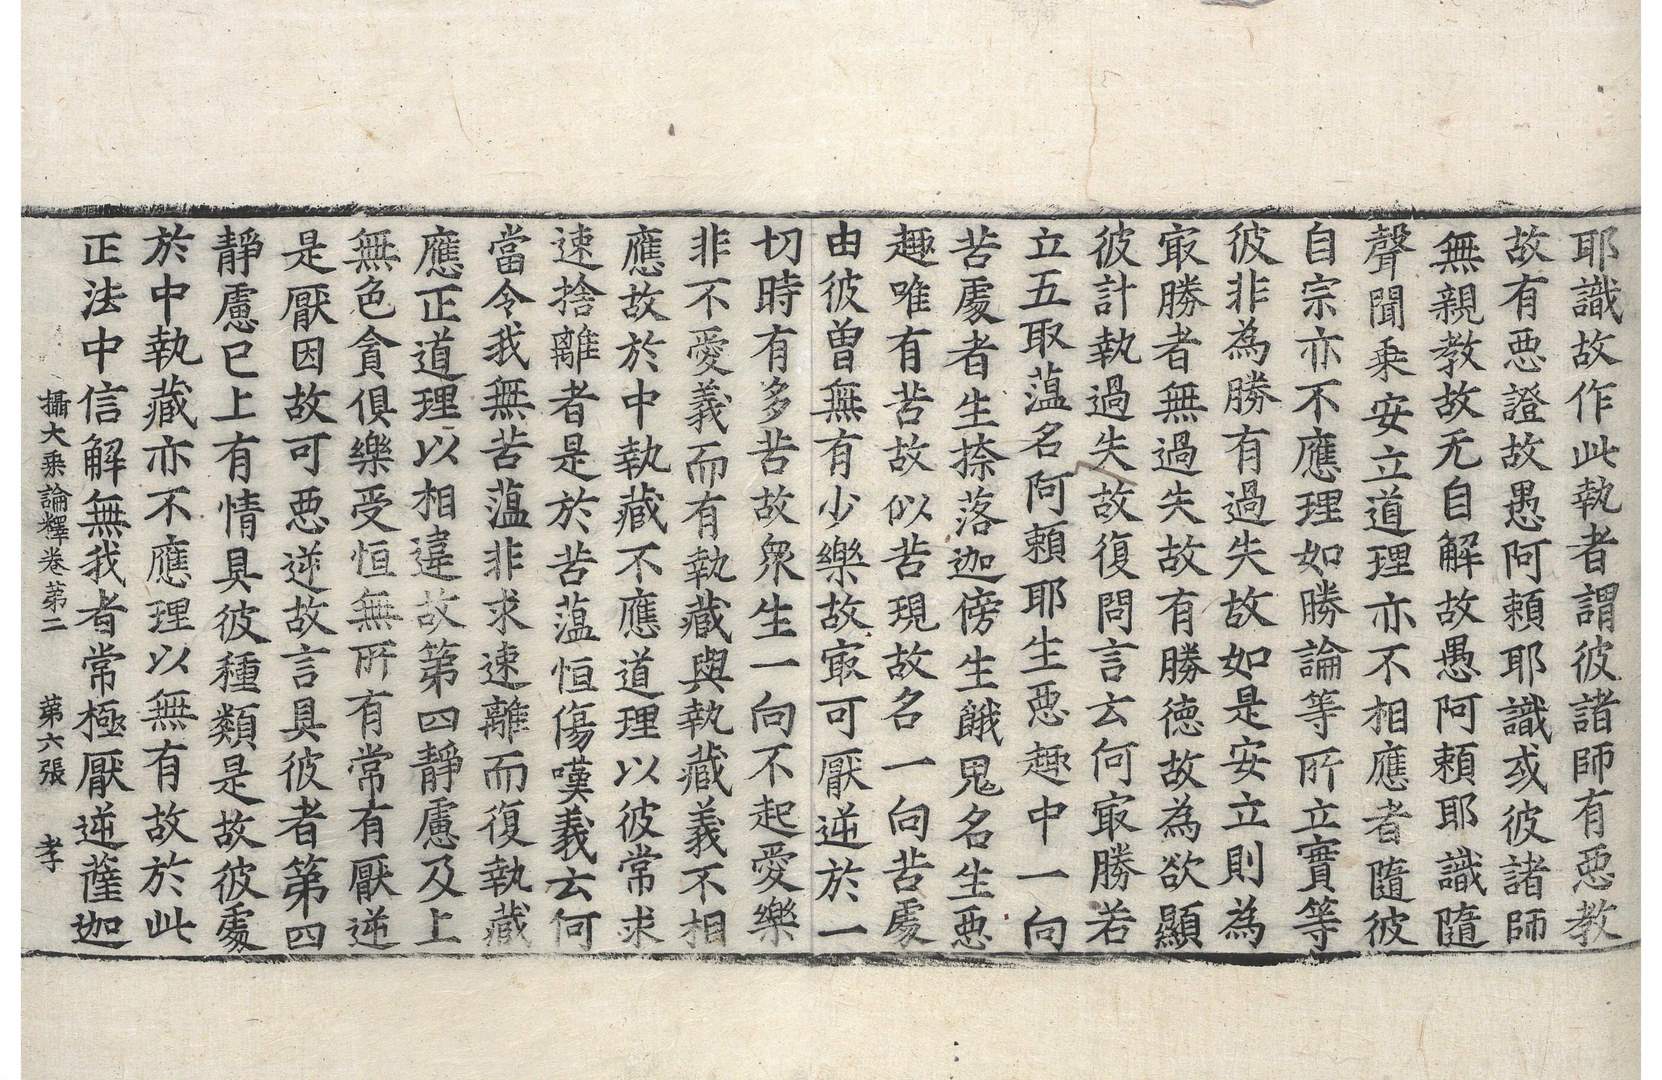 耶識故作此執者謂彼諸師有恶教
故有恶證故愚阿頼耶識或彼諸師
無親教故无自解故愚阿頼耶識隨
聲聞乗安立道理亦不相應者隨彼
自宗亦不應理如勝論等所立實等
彼非為勝有過失故如是安立則為
㝡勝者無過失故有勝徳故為欲顯
彼計執過失故復問言云何㝡勝若
立五取蕰名阿頼耶生恶趣中一向
苦處者生捺落迦傍生餓鬼名生恶
趣唯有苦故似苦現故名一向苦處
由彼曽無有少樂故㝡可厭逆於一
切時有多苦故衆生一向不起愛樂
非不愛義而有執藏與執藏義不相
應故於中執藏不應道理以彼常求
速捨離者是於苦蕰恒傷嘆義云何
當令我無苦蕰非求速離而復執藏
應正道理以相違故第四靜慮及上
無色貪俱樂受恒無所有常有厭逆
是厭因故可恶逆故言具彼者第四
靜慮已上有情具彼種類是故彼處
於中執藏亦不應理以無有故於此
正法中信解無我者常極厭逆薩迦
攝大乗論釋卷第二　第六張　孝